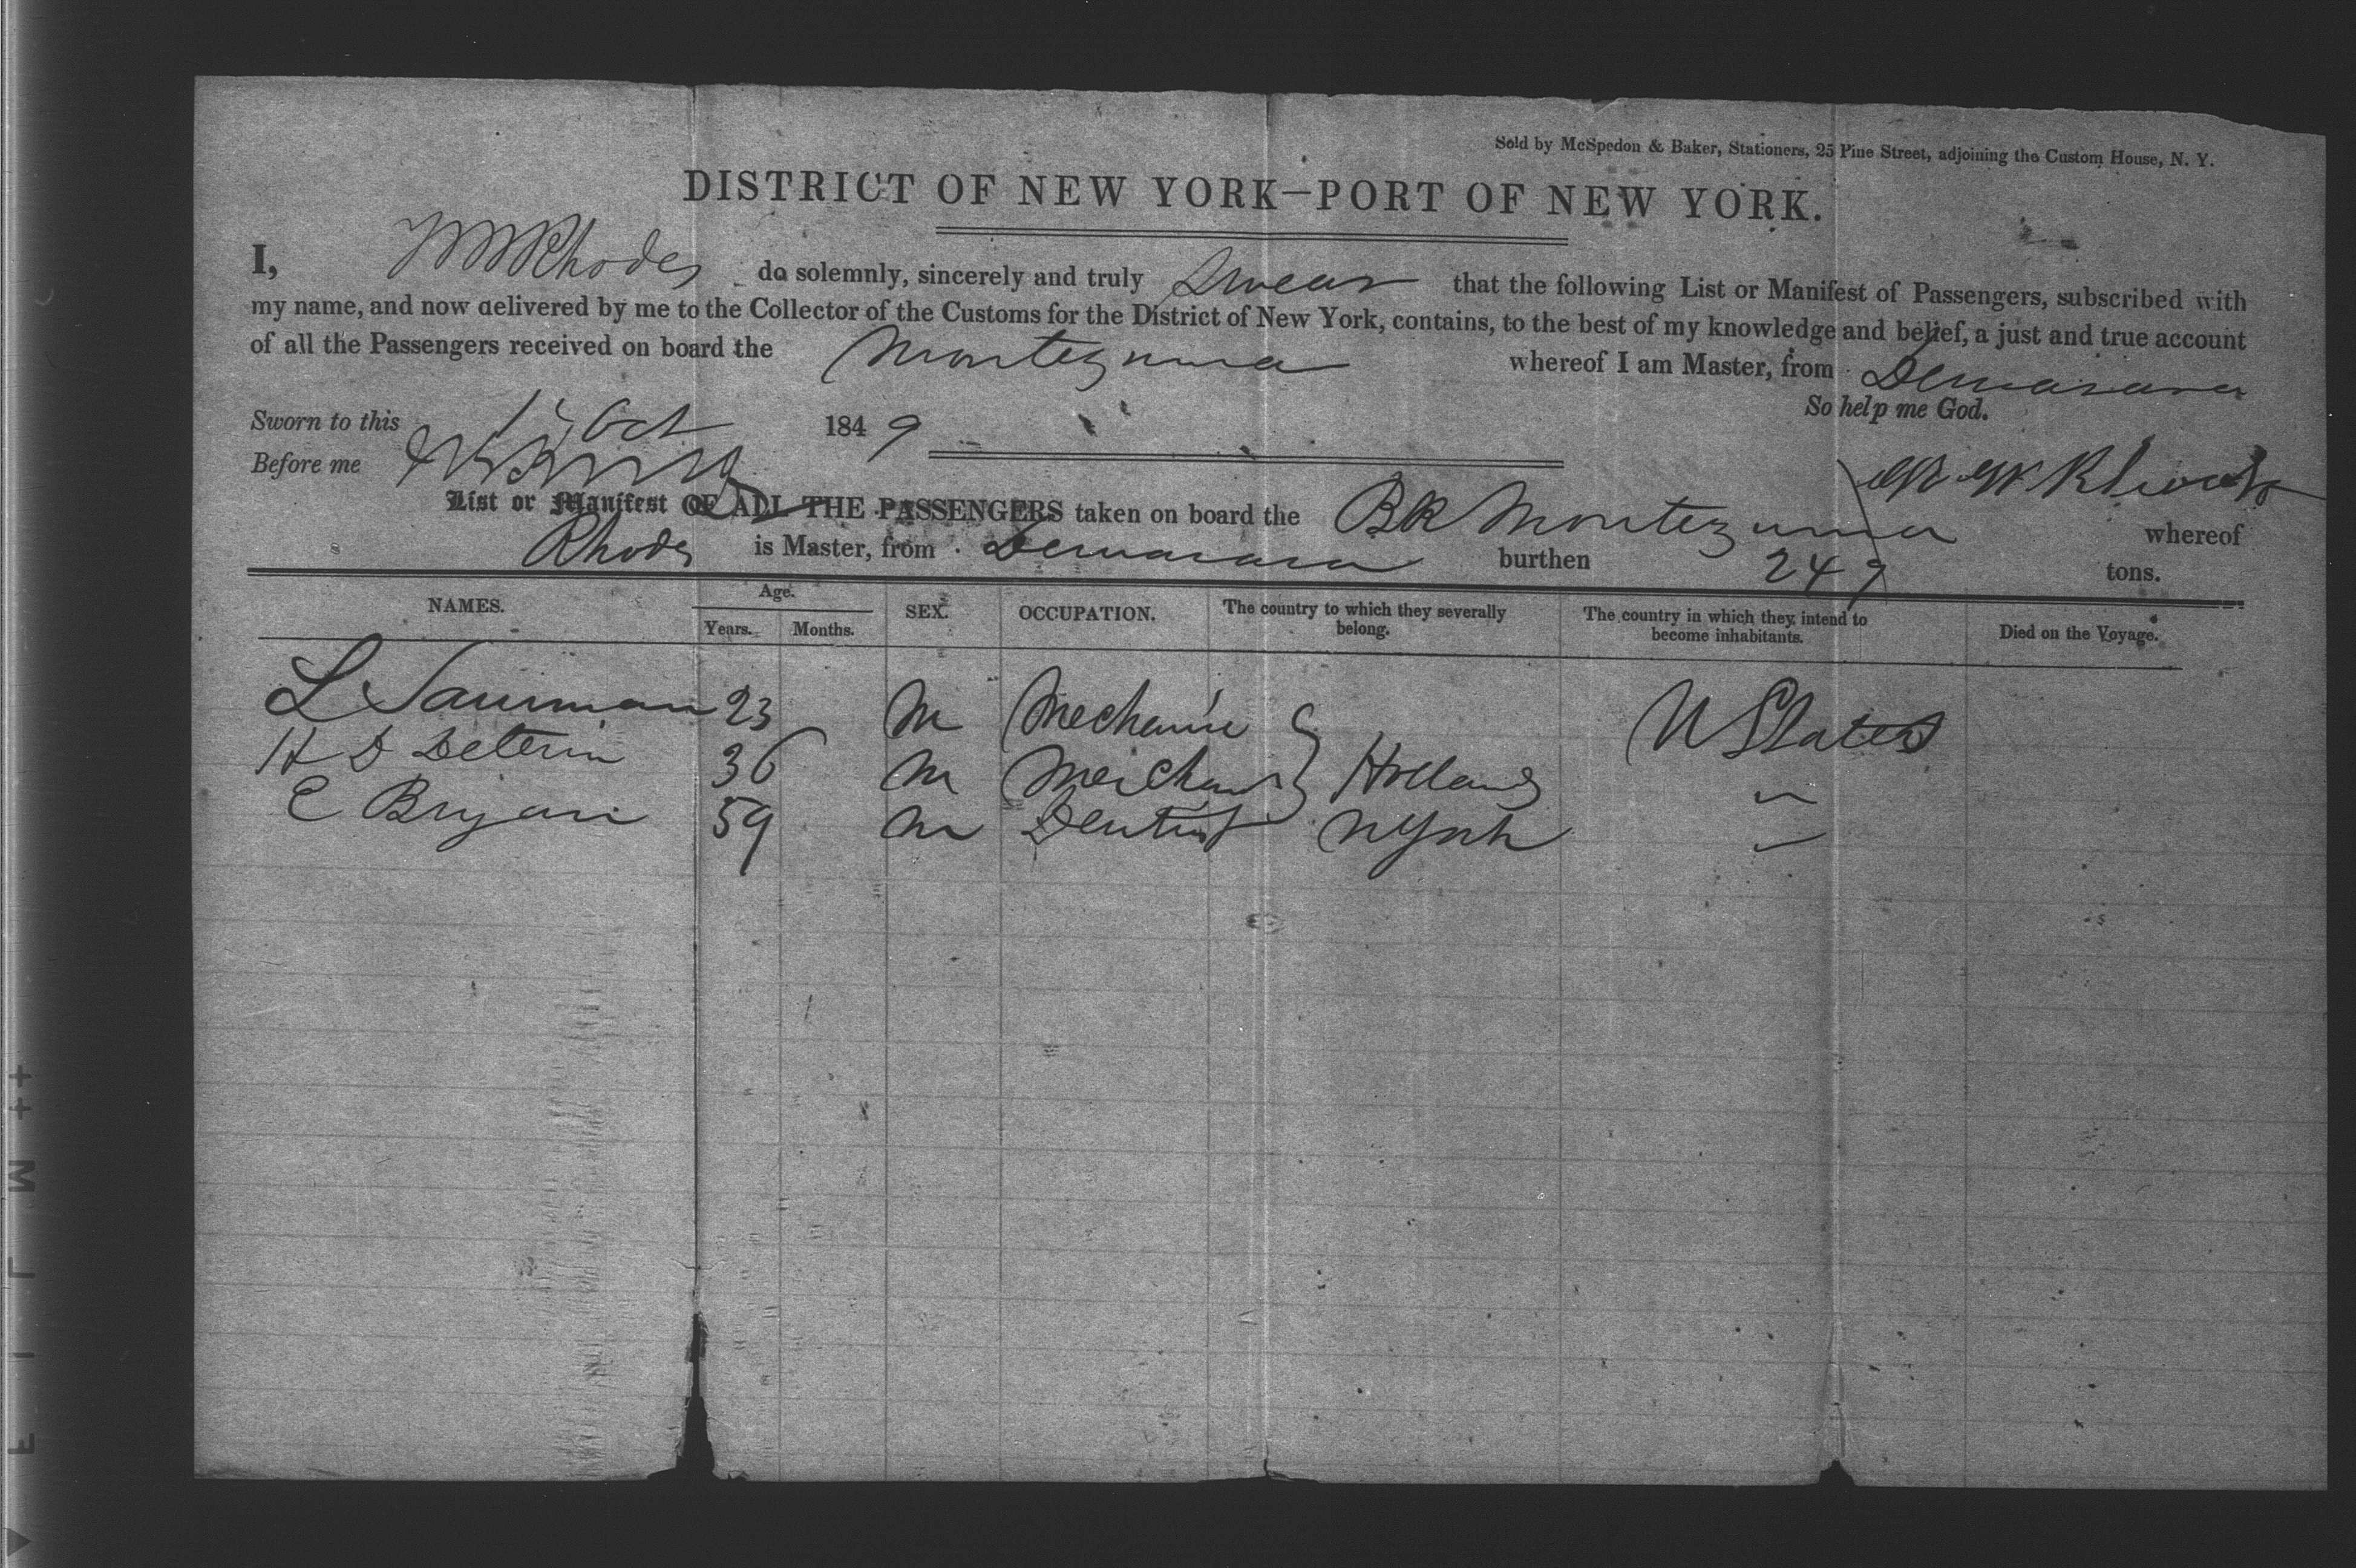 Sold by McSpedon & Baker, Stationers, 25 Pine Street, adjoining the Custom House, N. Y.
DISTRICT OF NEW YORK—PORT OF NEW YORK.
I, Rhodes do solemnly, sincerely and truly Swear that the following List or Manifest of Passengers, subscribed with
my name, and now delivered by me to the Collector of the Customs for the District of New York, contains, to the best of my knowledge and belief, a just and true account
of all the Passengers received on board the Montezuma whereof I am Master, from Demarara
So help me God.
Sworn to this Oct 1849
Before me
List or Manifest OF ALL THE PASSENGERS taken on board the BR Montezuma whereof
Rhodes is Master, from Demarara burthen 249 tons.
NAMES. Age. Years. Months. SEX. OCCUPATION. The country to which they severally belong. The country in which they intend to become inhabitants. Died on the Voyage.
L 23 M Mechanic U States
H D 36 M Merchant Holland "
C Bryan 59 M Dentist N York "